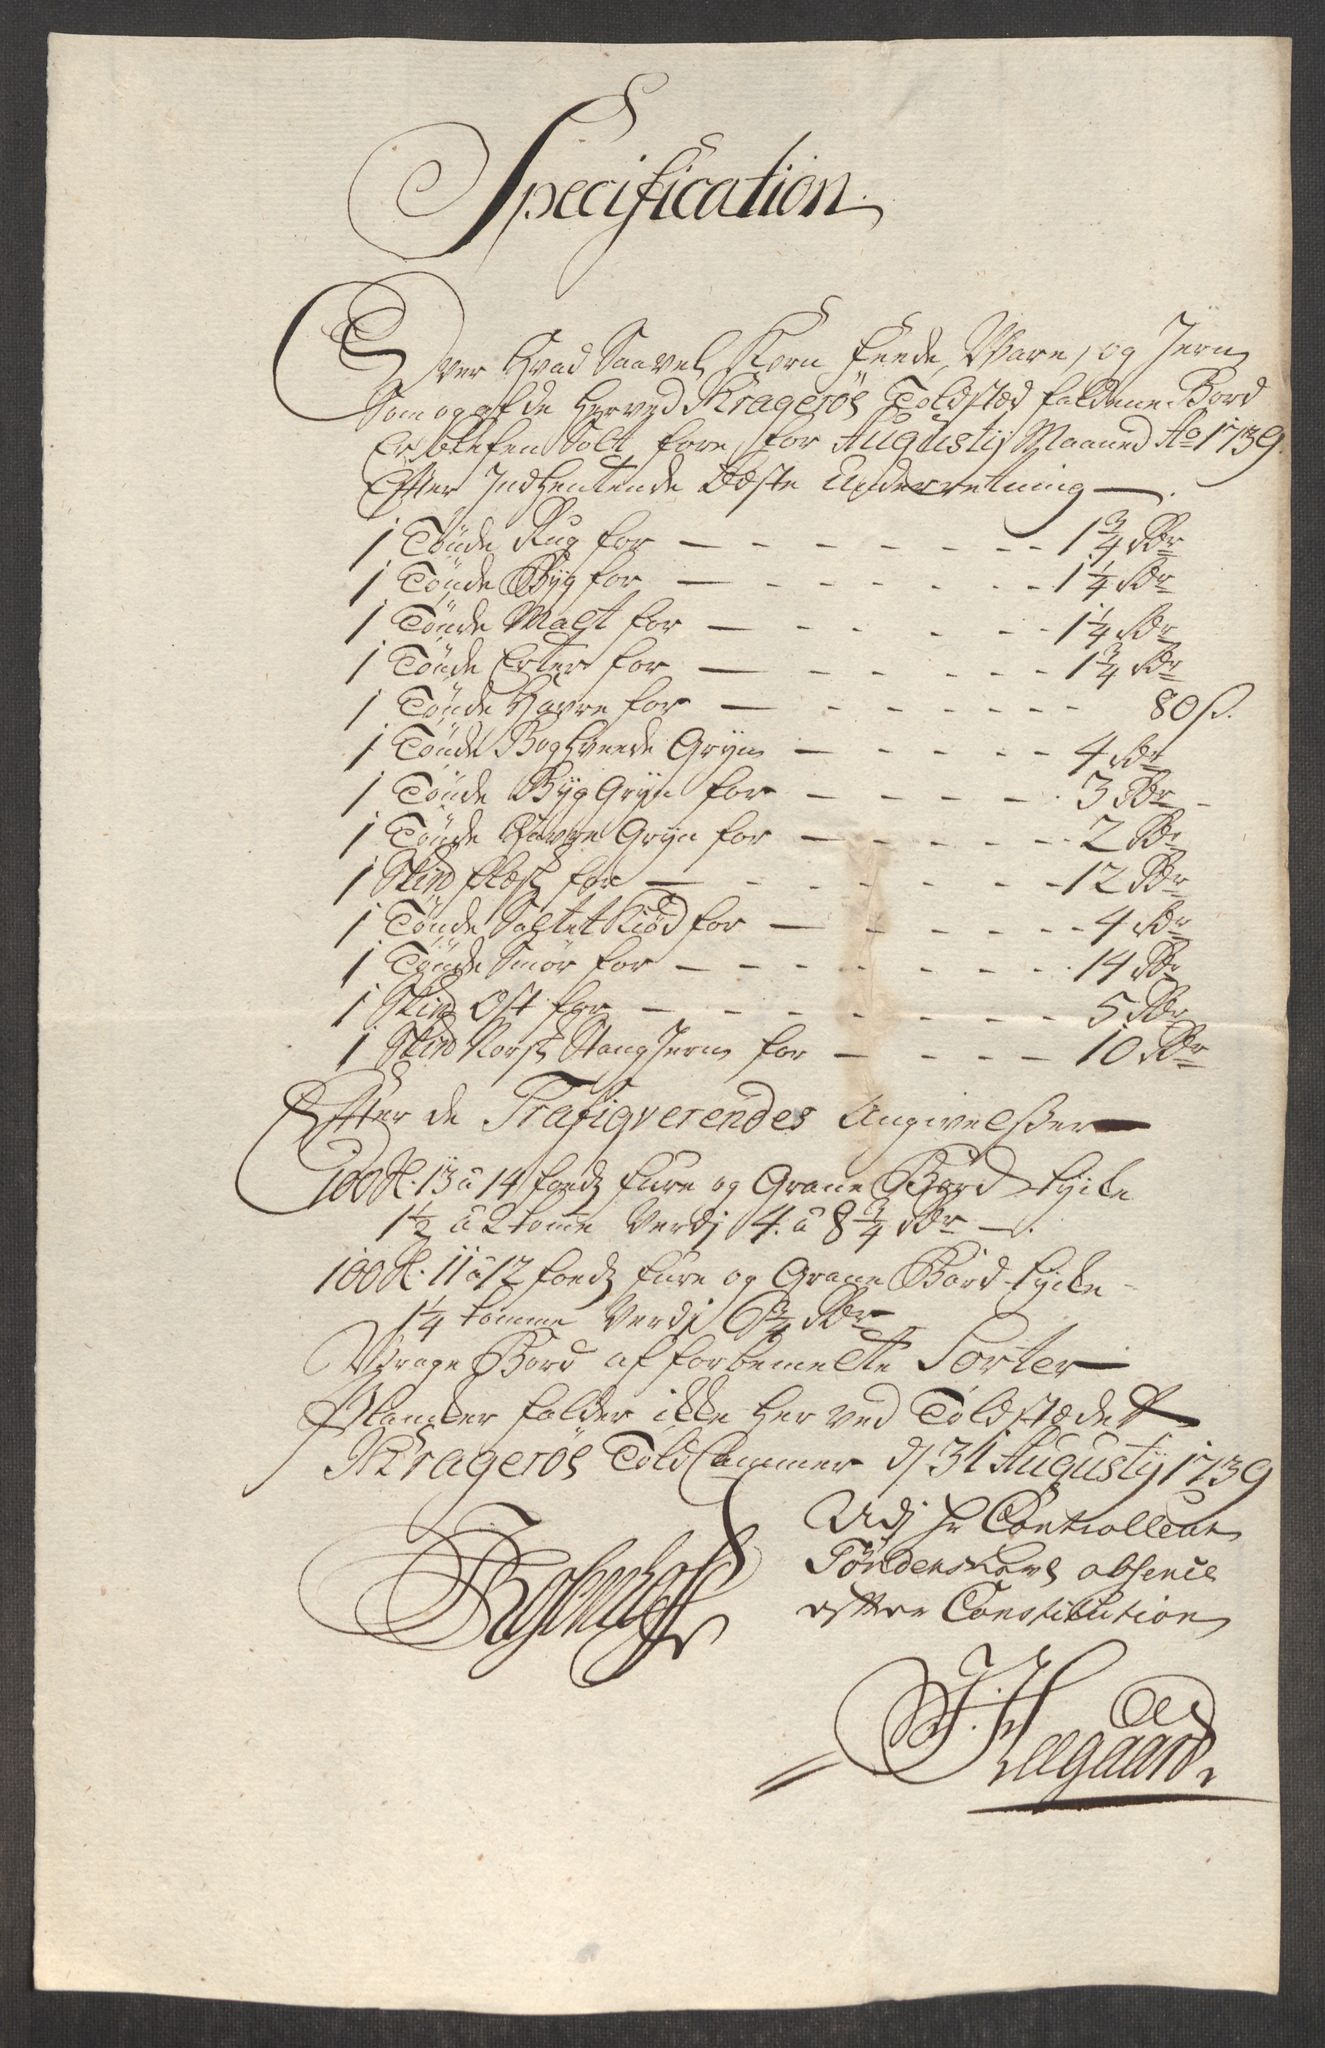 Specification
Over Hvad Saavel Korn feede Ware, og Jern
Som og af de herved Kragerøes Toldstæd faldene Bord
Er bleven Solt fore, for Augustij Maaned Ao 1739.
Efter Indhentende Beste Underretning
1 Tønde Rug for — 1 3/4 Rdr
1 Tønde Byg for — 1 1/4 Rdr
1 Tønde Malt for — 1 1/4 Rdr
1 Tønde Erter for — 1 3/4 Rdr
1 Tønde Havre for — 80 s.
1 Tønde Boghveede Gryn — 4 Rdr
1 Tønde Byg Gryn for — 3 Rdr
1 Tønde Havre Gryn for — 2 Rdr
1 Skpd flesk for — 12 Rdr
1 Tønde Saltet Kiød for — 4 Rdr
1 Tønde Smør for — 14 Rdr
1 Skpd Ost for — 5 Rdr
1 Skpd Norsk Stang Jern for — 10 Rdr
Efter de Trafiqverendes Angivelsser
100 st. 13 a 14 foeds fure og Grane Bord tycke
1 1/2 a 2 tomme Verdj 4. a 8 3/4 Rdr
100 st. 11 a 12 foeds fure og Grane Bord tycke
1 1/4 tomme Verdj 6 3/4 Rdr
Wrage Bord af forbemelte Sorter
Plancker falder ikke her ved Toldstædet
Kragerøes Told Cammer d 31 Augustij 1739
Udj Hr Controlleur
Tøndenskovs absence
efter Constitution
J. Heegaard